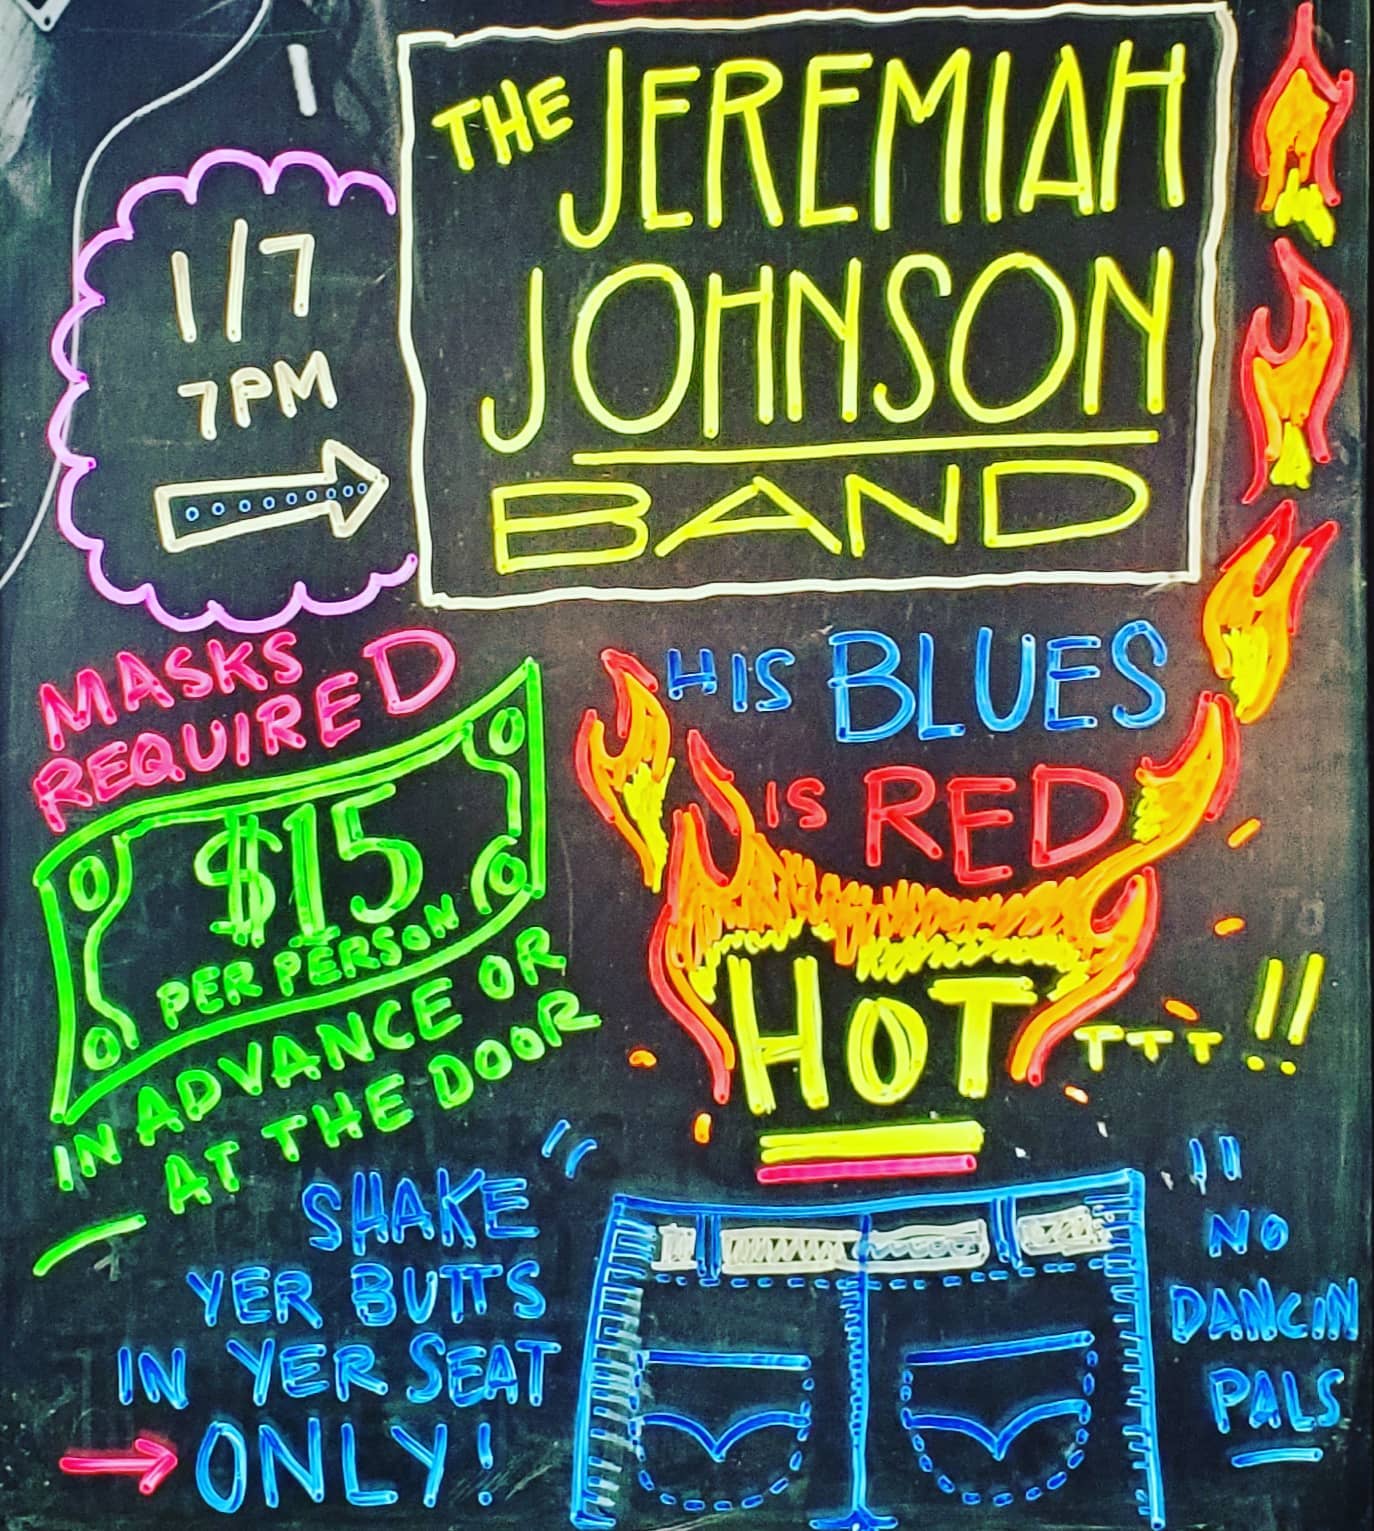 THE JEREMIAH
JOHNSON
BAND
1/7
7PM
MASKS
REQUIRED
$15
PER PERSON
IN ADVANCE OR
AT THE DOOR
HIS BLUES
IS RED
HOT TTT !!
SHAKE
YER BUTTS
IN YER SEAT
ONLY!
NO
DANCIN
PALS